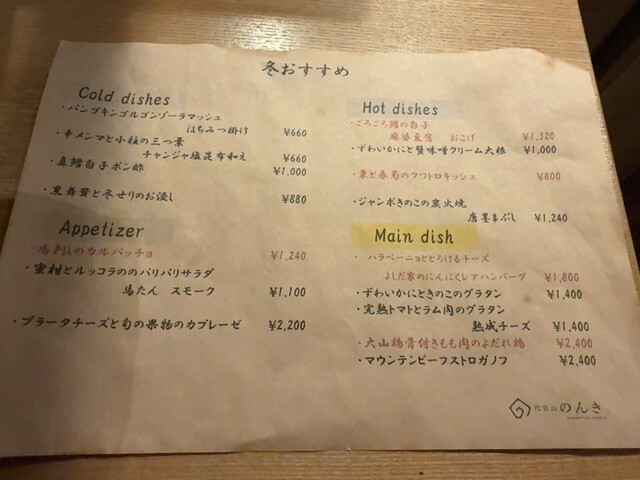 冬おすすめ
Cold dishes
・パンプキンゴルゴンゾーラマッシュ
はちみつ掛け ¥660
・キメンマと小柱の三つ葉
チャンジャ塩昆布和え ¥660
・真鱈白子ポン酢 ¥1,000
・黒舞茸と冬せりのお浸し ¥880
Appetizer
・馬刺しのカルパッチョ ¥1,240
・蜜柑とルッコラののパリパリサラダ
馬たん スモーク ¥1,100
・ブラータチーズと旬の果物のカプレーゼ ¥2,200
Hot dishes
・ごろごろ鱈の白子
麻婆豆腐 おこげ ¥1,320
・ずわいかにと蟹味噌クリーム大根 ¥1,000
・栗と春菊のクワトロキッシュ ¥800
・ジャンボきのこの炭火焼
唐墨まぶし ¥1,240
Main dish
・ハラペーニョととろけるチーズ
よしだ家のにんにくレアハンバーグ ¥1,800
・ずわいかにときのこのグラタン ¥1,400
・完熟トマトとラム肉のグラタン
熟成チーズ ¥1,400
・大山鶏骨付きもも肉のよだれ鶏 ¥2,400
・マウンテンビーフストロガノフ ¥2,400
代官山 のんき